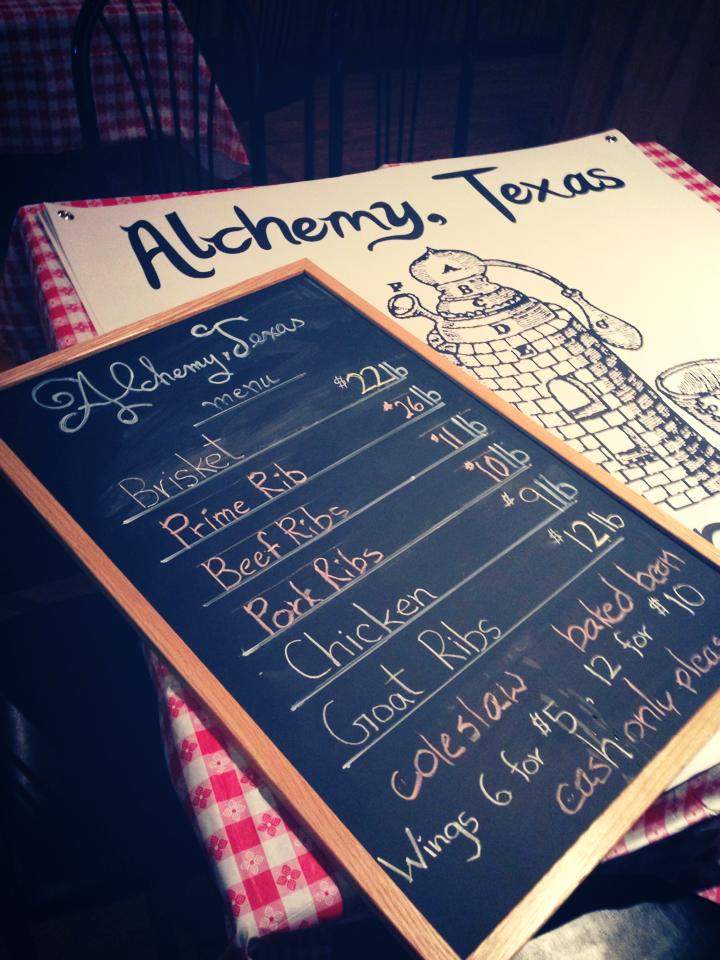 Alchemy, Texas
A
P
B
C
D
E
Alchemy, Texas
menu
Brisket $22 lb
Prime Rib $26 lb
Beef Ribs $11 lb
Pork Ribs $10 lb
Chicken $9 lb
Goat Ribs $12 lb
coleslaw, baked bean
Wings 6 for $5, 12 for $10
cash only pleas